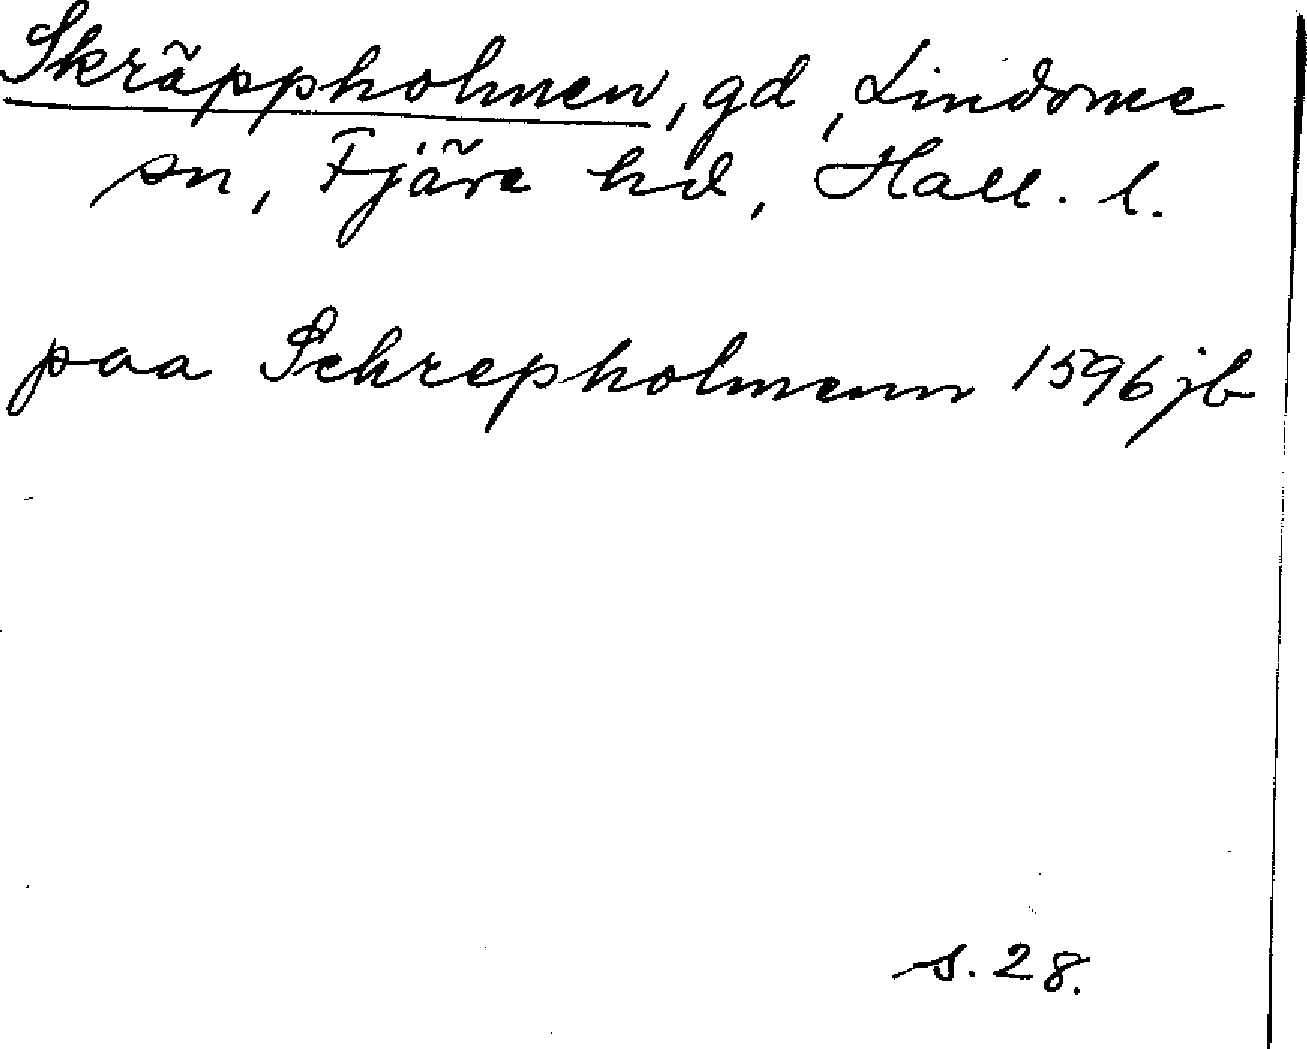 Skräppholmen, gd, Lindome
sn, Fjäre hd, Hall. l.
paa Schrepholmenn 1596 jb
s. 28.